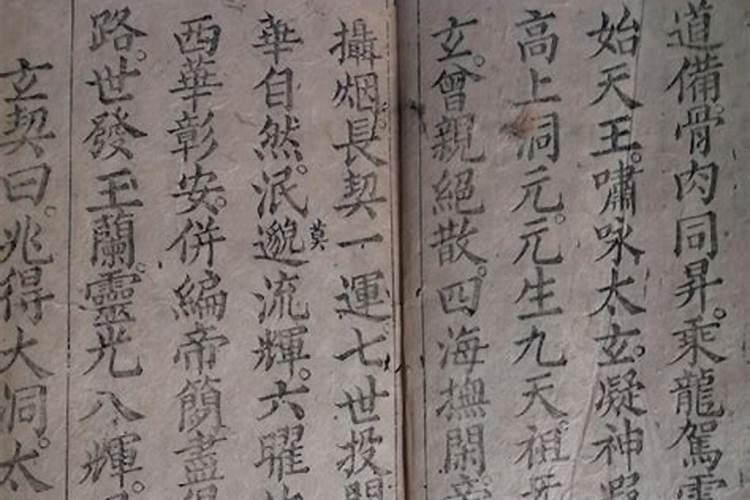 道備骨肉同昇。乘龍駕
始天王。嘯咏太玄。凝神
高上洞元。元生九天。祖
玄。曾親絕散。四海撫閑
攝烟。長契一運七世投
華自然。泯邈莫流輝。六曜
西華彰安。併編帝簡。盡
路。世發玉蘭。靈光八輝。
玄契曰。兆得大洞。太